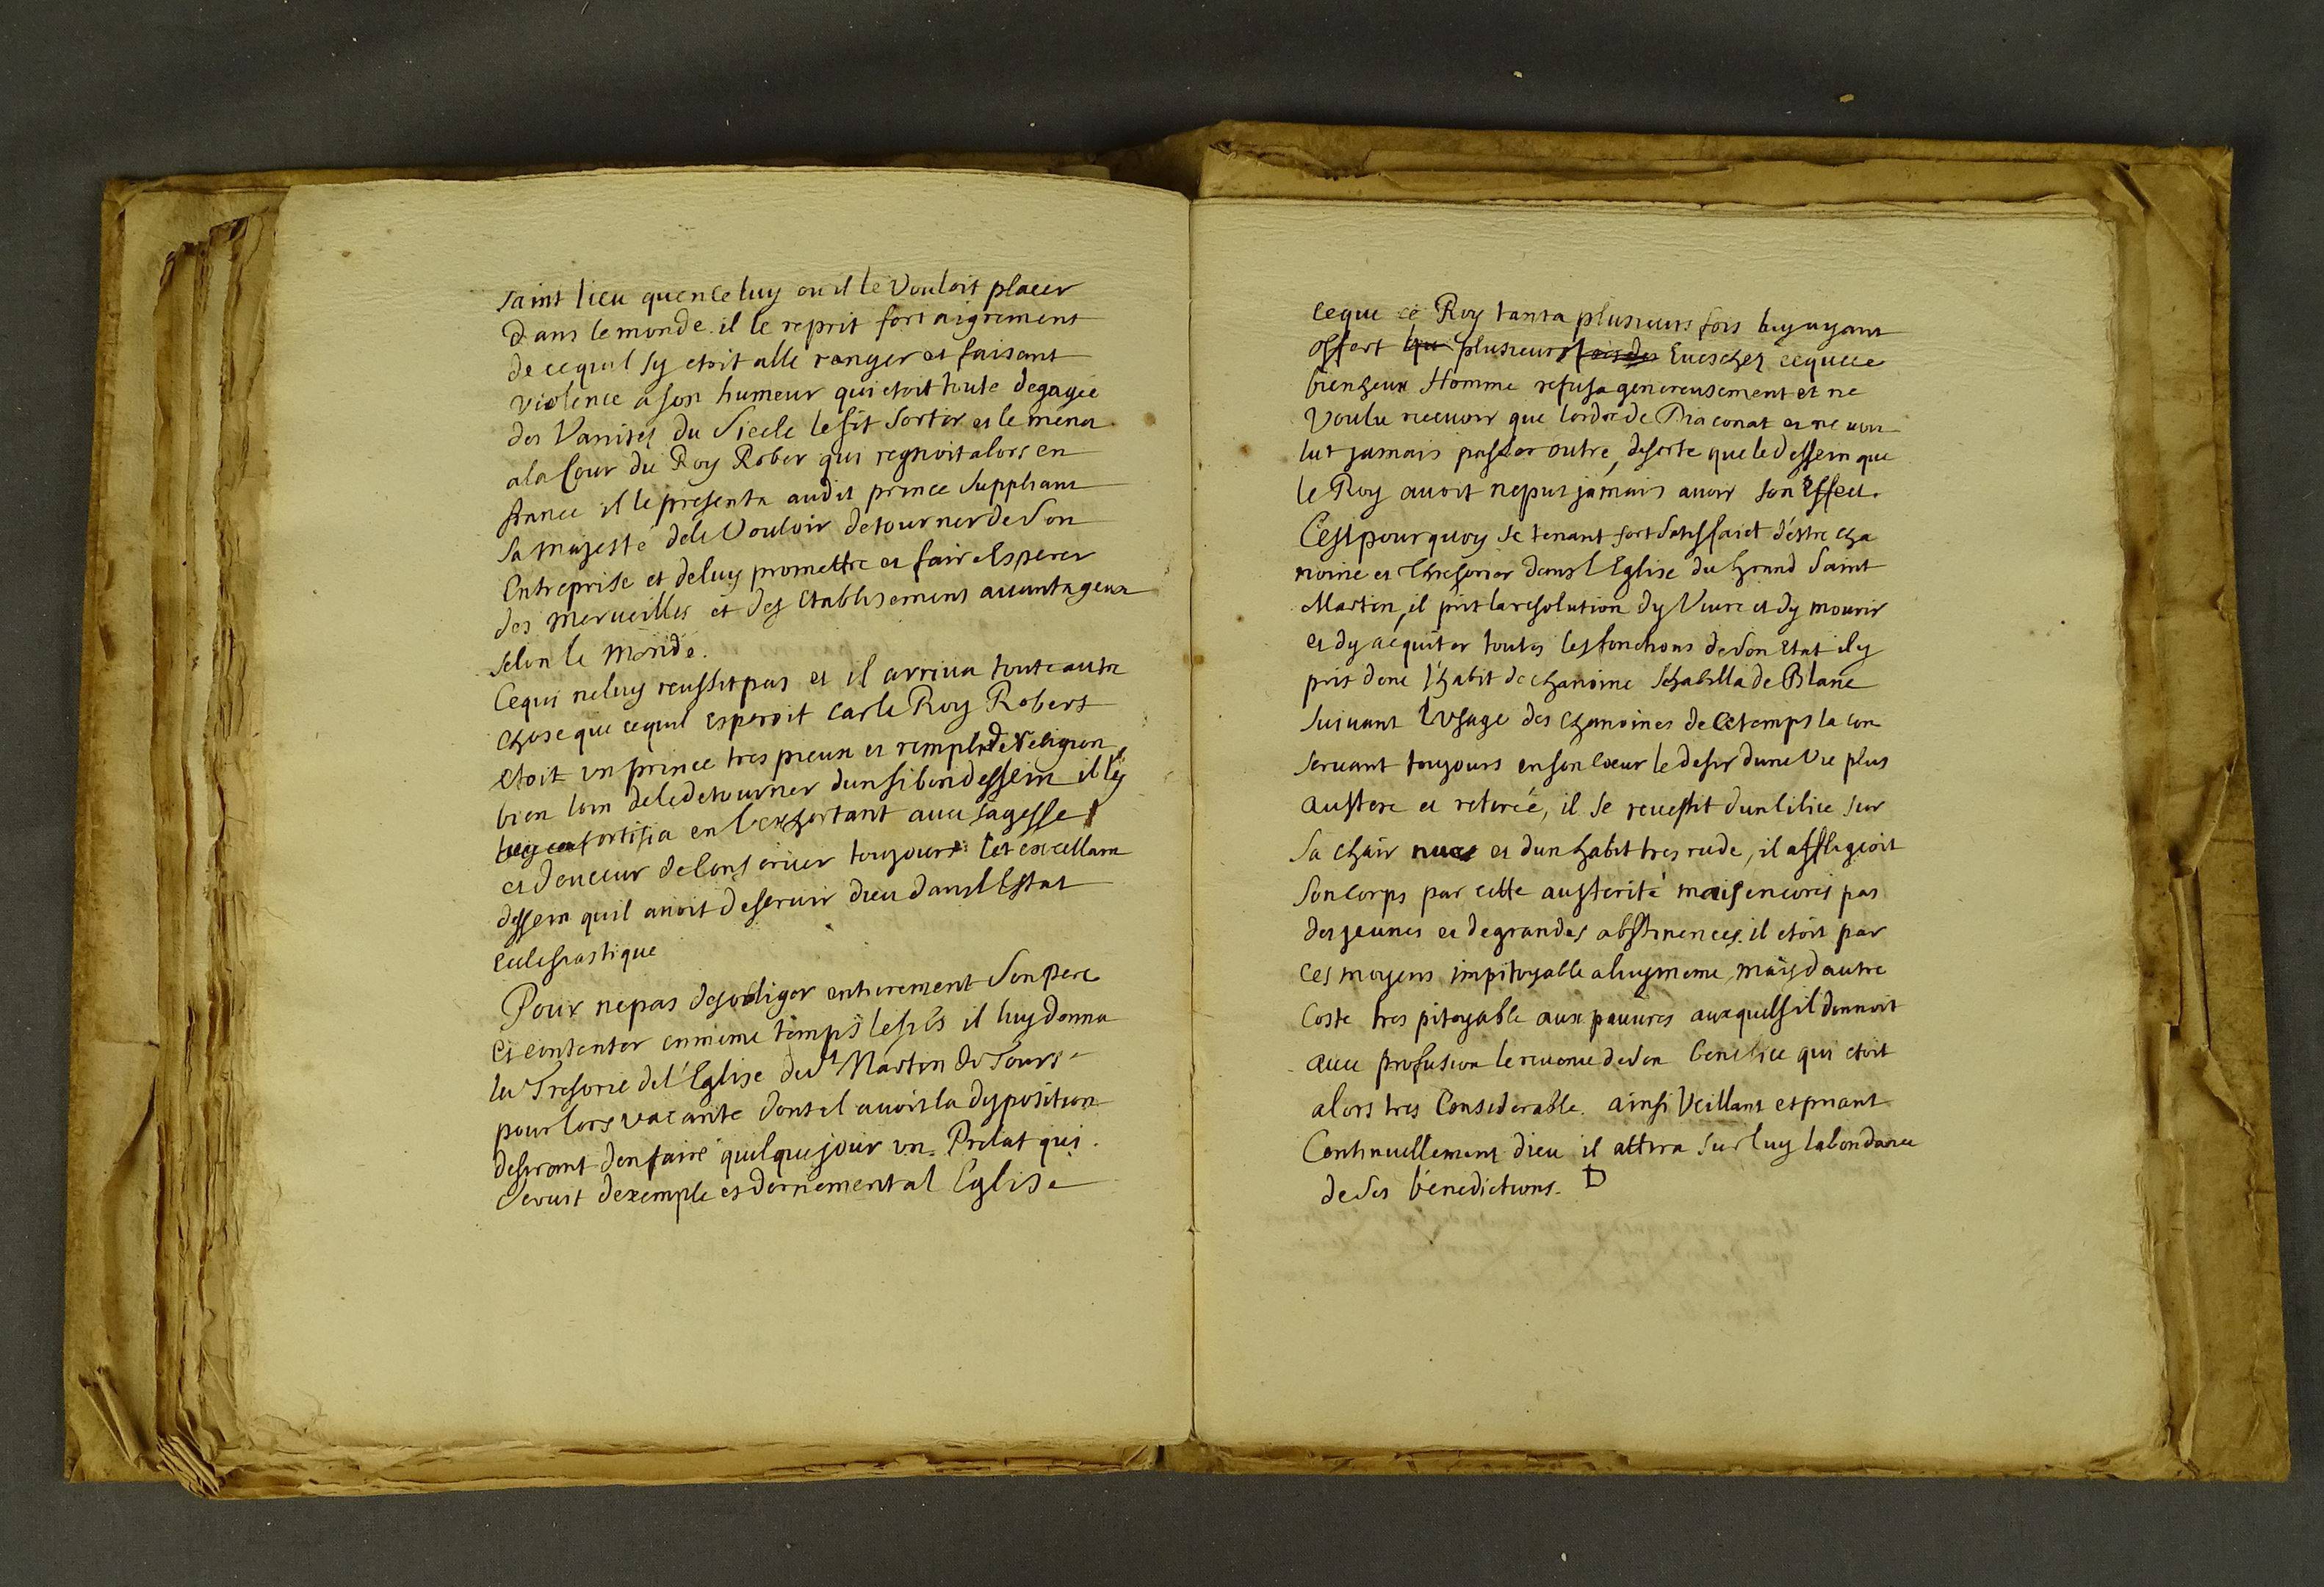 saint lieu quen celuy ou il le Vouloit placer
Dans le monde. il le reprit fort aigrement
de cequil sy etoit allé ranger et faisant
violence a son humeur qui etoit toute degagée
des Vanités du Siecle le fit sortir et le mena
a la Cour du Roy Rober qui regnoit alors en
france il le presenta audit prince Suppliant
sa majesté dele Vouloir detourner de Son
Entreprise et deluy promettre et faire Esperer
des merveilles et des Etablisemens auantageux
selon le monde.
Cequi neluy reussit pas et il arriua toute autre
chose que cequil esperoit car le Roy Robert
etoit un prince tres pieux et rempli de Religion
bien loin dele detourner dun si bon dessein il ly
fortifia en l'exhortant auec sagesse
et douceur de conseruer toujours cet excellant
dessein quil auoit de seruir dieu dans l Estat
ecclesiastique
Pour nepas desobliger entierement Son Pere
et contenter en meme temps le fils il luy donna
la Tresorie del'Eglise de St Martin de Tours
pour lors vacante dont il auoit la dyposition
desirant den faire quelque jour un Prelat qui
seruit dexemple et dornement a l Eglise
ceque ce Roy tanta plusieurs fois luy ayant
offert plusieurs Eueschez ceque ce
bienheux Homme refusa genereusement et ne
Voulu receuoir que lordre de Diaconat et ne uou
lut jamais passer outre, desorte que le dessein que
le Roy auoit neput jamais auoir son Effect.
C'est pourquoy se tenant fort satisfaict d'estre cha
noine et thresorier dans l Eglise du grand Saint
Martin, il prit la resolution dy Viure et dy mourir
et dy acquiter toutes les fonctions de son Etat il y
prit donc l'habit de chanoine Shabilla de Blanc
suiuant l'vsage des chanoines de Ce temps la con
seruant toujours en son Coeur le desir dune Vie plus
austere et retirée, il se reuestit dun Cilice sur
sa chair nuë et dun habit tres rude, il affligeoit
son Corps par cette austerité mais encores par
des jeunes et de grandes abstinences. il etoit par
ces moyens impitoyable a luymeme, mais d autre
Coste tres pitoyable aux pauures auxquels il donnoit
auec profusion le reuenu de son benefice qui etoit
alors tres Considerable. ainsi Veillant et priant
Continuellement dieu il attira sur luy labondance
de Ses bénedictions. D